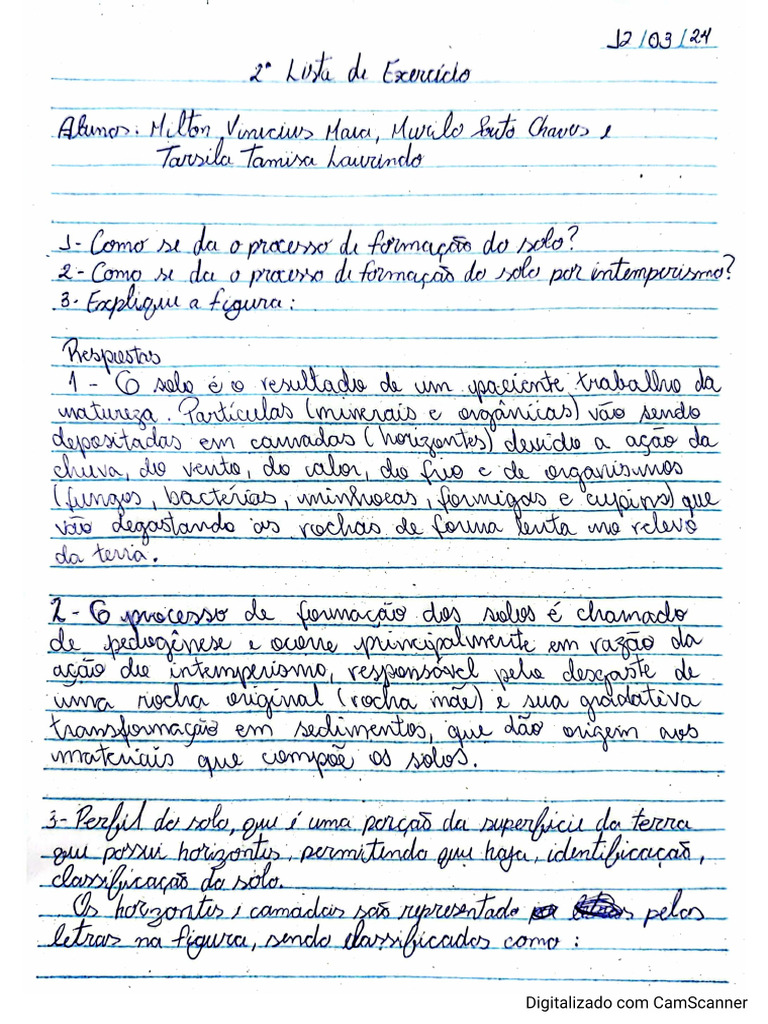 12/03/24
2ª Lista de Exercício
Alunos: Milton Vinicius Maia, Murilo Souto Chaves e
Tarsila Tamisa Laurindo
1- Como se da o processo de formação do solo?
2- Como se da o processo de formação do solo por intemperismo?
3- Explique a figura:
Respostas
1 - O solo é o resultado de um paciente trabalho da
natureza. Partículas (minerais e orgânicas) vão sendo
depositadas em camadas (horizontes) devido a ação da
chuva, do vento, do calor, do frio e de organismos
(fungos, bactérias, minhocas, formigas e cupins) que
vão degastando as rochas de forma lenta no relevo
da terra.
2 - O processo de formação dos solos é chamado
de pedogênese e ocorre principalmente em razão da
ação do intemperismo, responsável pelo desgaste de
uma rocha original (rocha mãe) e sua gradativa
transformação em sedimentos, que dão origem aos
materiais que compõe os solos.
3- Perfil do solo, que é uma porção da superfície da terra
que possui horizontes, permitindo que haja, identificação,
classificação do solo.
Os horizontes e camadas são representado pelas
letras na figura, sendo classificados como:
Digitalizado com CamScanner